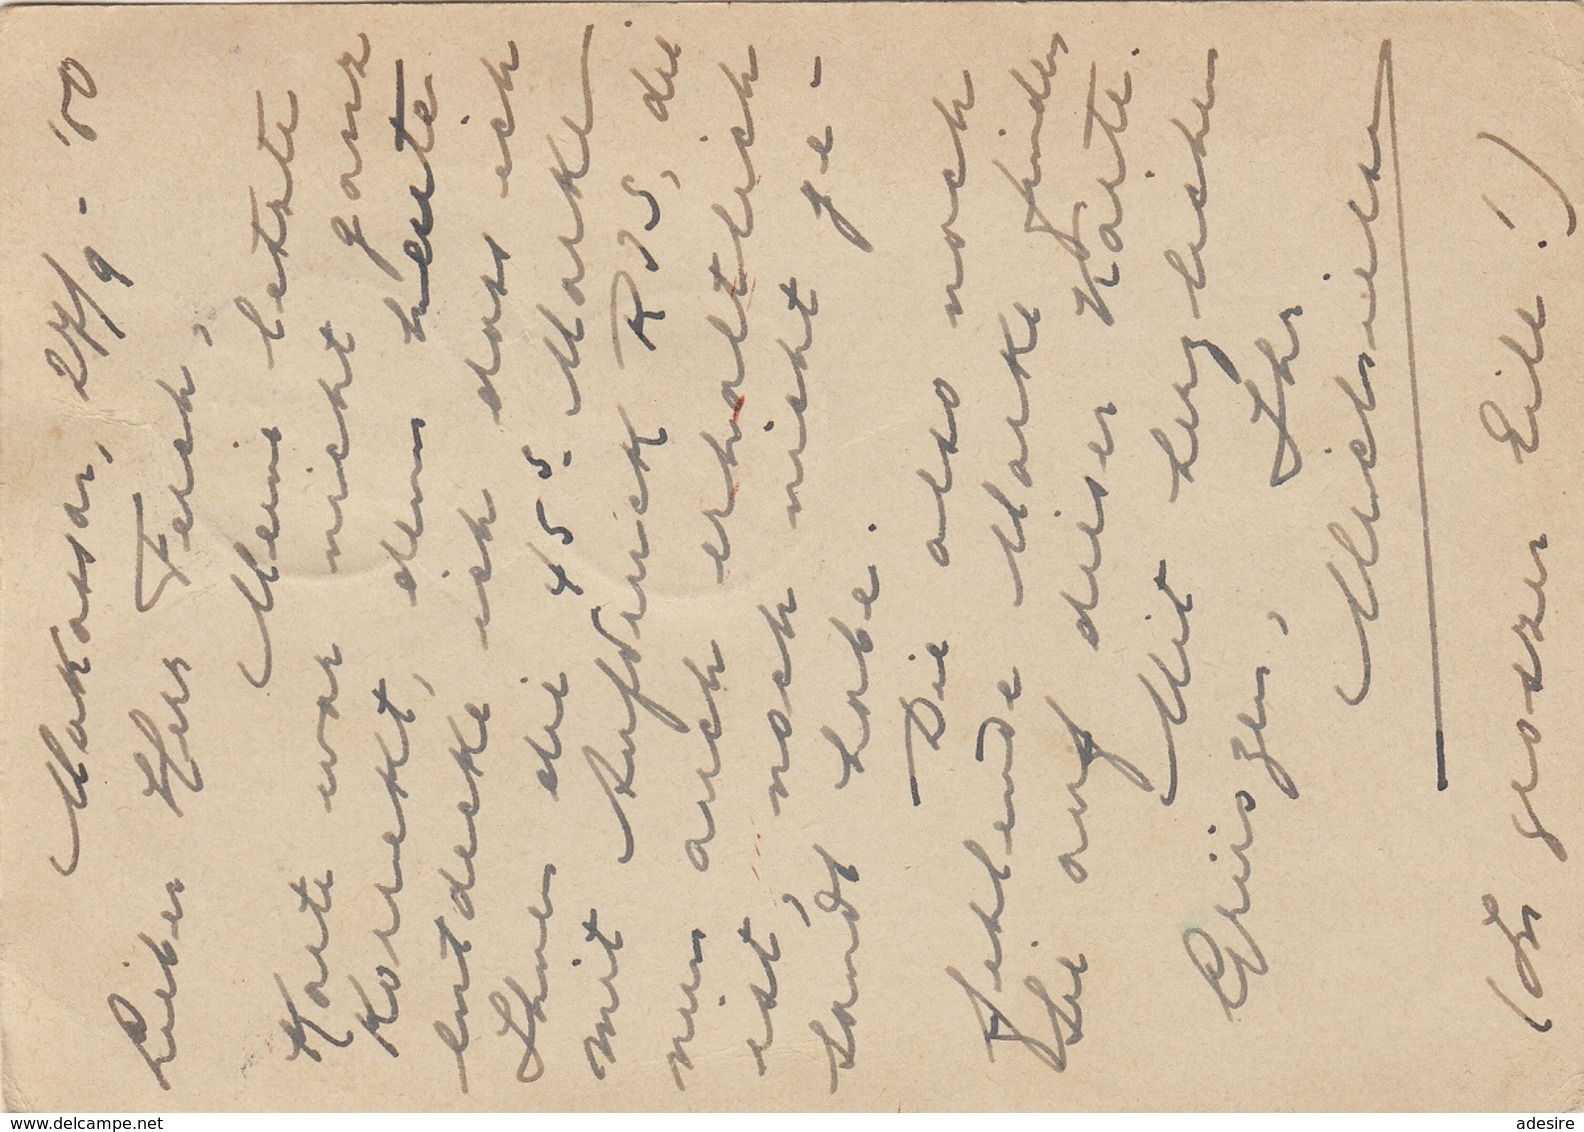 Makassar, 27/9 - '50
Lieber Herr Ferch,
Meine letzte
Karte war nicht ganz
korrekt, denn heute
entdecke ich dass ich
Ihnen die 45 S. Marke
mit Aufdruck R I S, die
nun auch erhältlich
ist, noch nicht ge-
sandt habe.
Die also noch
fehlende Marke finden
Sie auf dieser Karte.
Mit herzlichen
Grüszen, Ihr
(In groszer Eile!)
www.delcampe.net
adesire